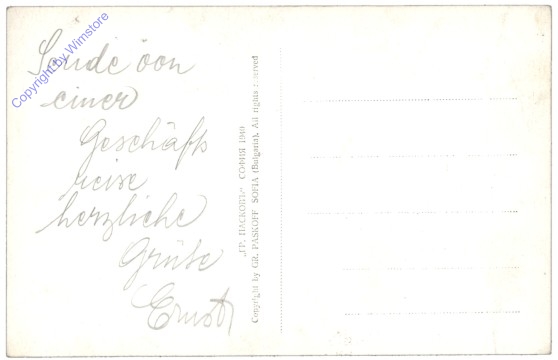 Sende von
einer
Geschäfts
reise
herzliche
Grüße
Ernst
„ГР. ПАСКОВЪ“ СОФИЯ 1940
Copyright by GR. PASKOFF SOFIA (Bulgaria). All rights reserved
Copyright by Wimstore